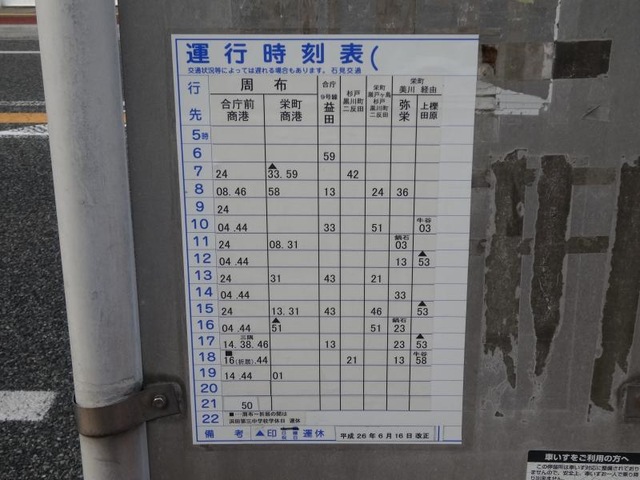 運行時刻表(
交通状況等によっては遅れる場合もあります。石見交通
行先 周布 合庁 9号線 益田 杉戸 黒川町 二反田 栄町 瀬戸ヶ島 杉戸 黒川町 二反田 栄町 美川 経由
合庁前 商港 栄町 商港 弥栄 上櫟 田原
5時
6 59
7 24 ▲33.59 42
8 08.46 58 13 24 36
9 24
10 04.44 33 51 牛谷 03
11 24 08.31 鍋石 03
12 04.44 13 ▲53
13 24 31 43 21
14 04.44 33
15 24 13.31 43 46 ▲53
16 04.44 ▲51 51 鍋石 23
17 14.38.46 三隅 13 23 ▲53
18 ■16(折居).44 21 13 牛谷 58
19 14.44 01
20
21 50
22 ■…周布ー折居の間は
浜田第三中学校学休日 運休
備考 ▲印 運休 平成26年6月16日改正
車いすをご利用の方へ